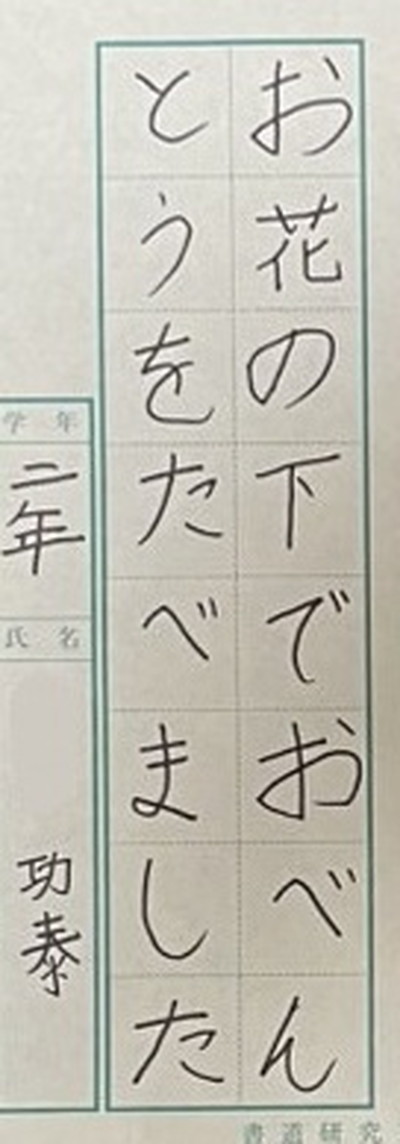 お花の下でおべん
とうをたべました
学年
二年
氏名
功泰
書道研究